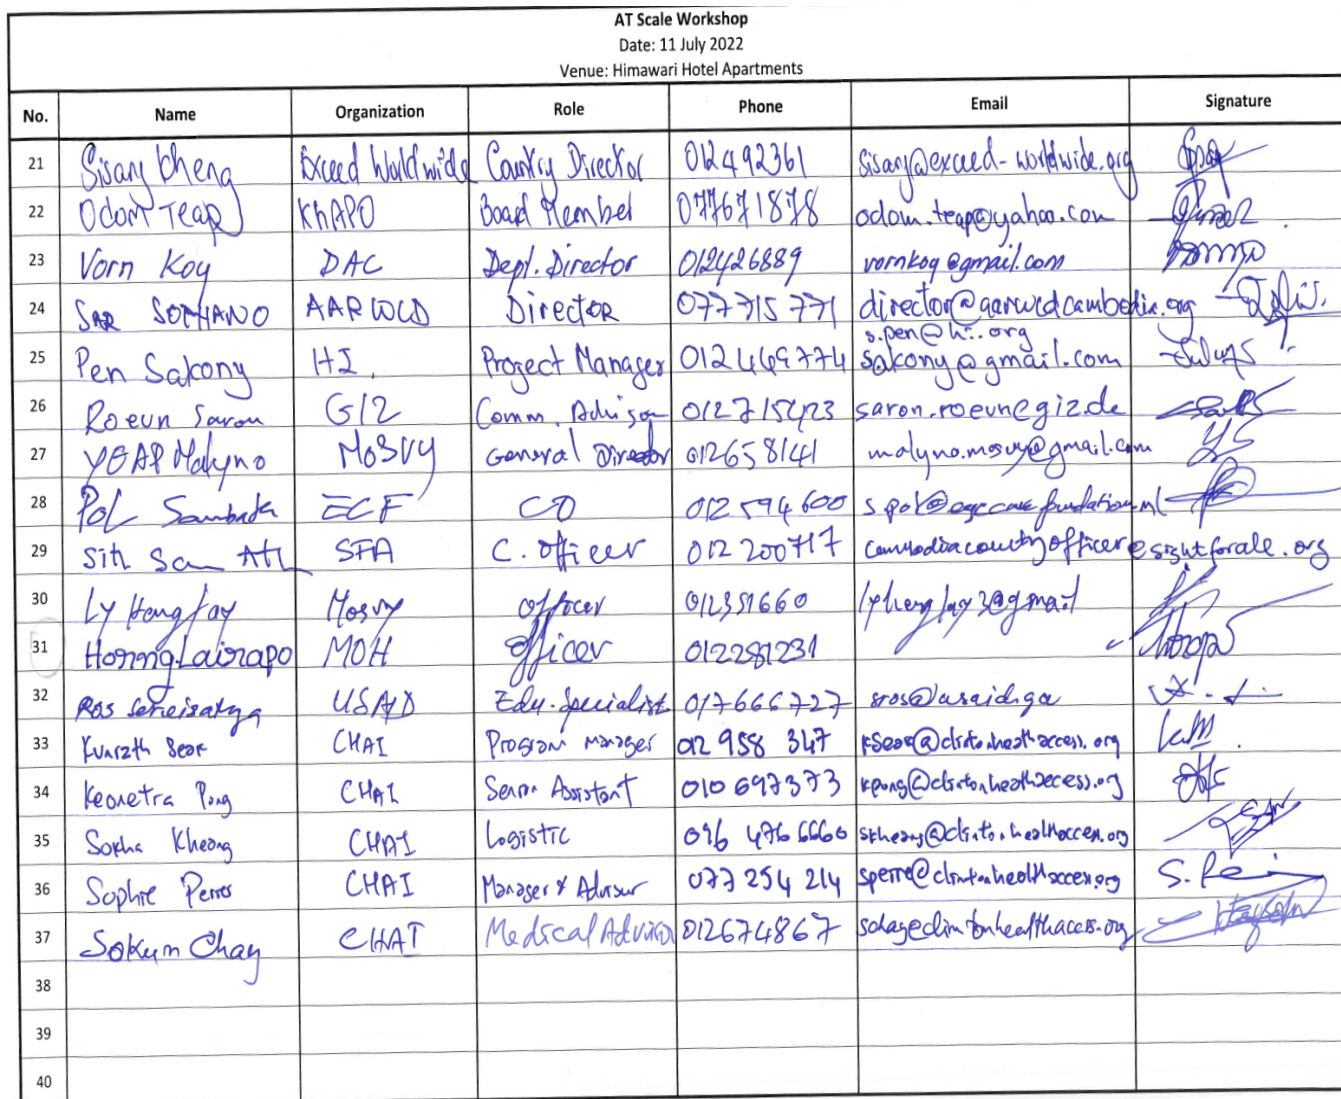 AT Scale Workshop
Date: 11 July 2022
Venue: Himawari Hotel Apartments
No. Name Organization Role Phone Email Signature
21 Sisary Kheng Exceed Worldwide Country Director 012492361 sisary@exceed-worldwide.org
22 Odom Teap KhAPO Board Member 077671878 odom.teap@yahoo.com
23 Vorn Koy DAC Dept. Director 012426889 vornkoy@gmail.com
24 SAR SOPHANO AARWCD Director 077715771 director@aarwcdcambodia.org
s.pen@hi.org
25 Pen Sakony HI. Project Manager 012469774 sakony@gmail.com
26 Roeun Saron GIZ Comm. Advisor 012715423 saron.roeun@giz.de
27 YEAP Malyno MoSVY General Director 012658141 malyno.mosvy@gmail.com
28 Pol Sambath ECF CO 012594600
29 Sith Sam Ath SFA C. officer 012200717 cambodiacountyofficer@sightforale.org
30 Ly Heng Mosvy officer 012351660
31 MOH officer 012281231
32 Ros USAID Edu. Specialist 017666727 sros@usaid.ga
33 Kunrath Seak CHAI Program Manager 012 958 347
34 Keonetra Pong CHAI Senior Assistant 010 697373 kpong@clintonhealthaccess.org
35 Sokha Kheang CHAI Logistic 096 476 6660 skheang@clintonhealthaccess.org
36 Sophie CHAI Manager & Advisor 077 254 214
37 Sokum Chay CHAI Medical Advisor 012674867 schay@clintonhealthaccess.org
38
39
40